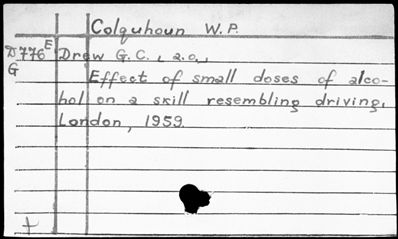 Colquhoun W.P.
D776E Drew G.C., a.o.,
G
Effect of small doses of alco-
hol on a skill resembling driving.
London, 1959.
+